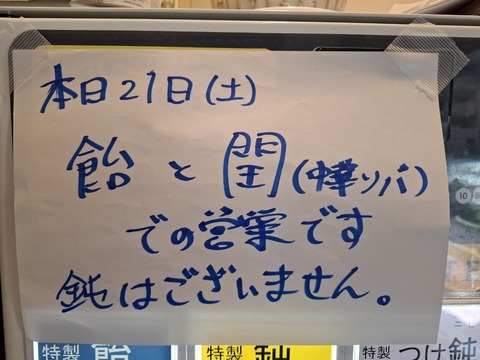 本日21日(土)
飴と閏(中華ソバ)
での営業です
鈍はございません。
特製 飴
特製 鈍
特製 つけ鈍